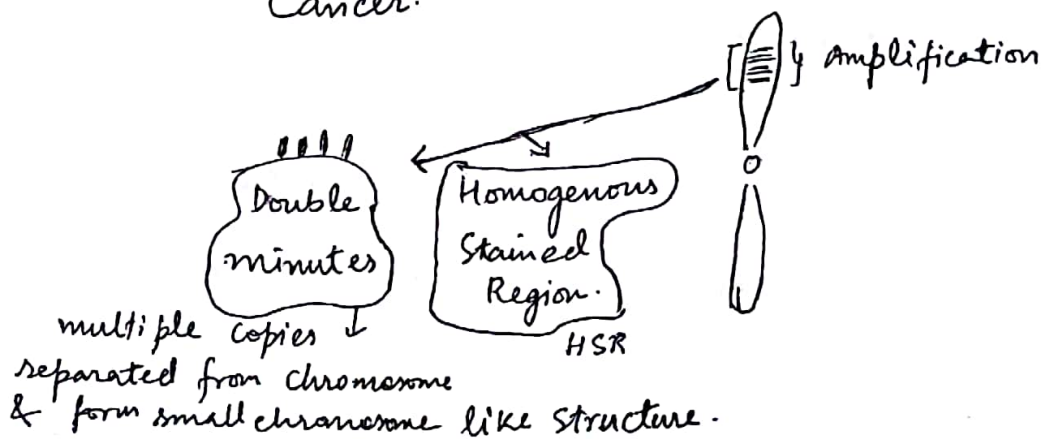 Cancer.
} Amplification
Double
minutes
Homogenous
Stained
Region.
HSR
multiple copies
separated from chromosome
& form small chromosome like structure.